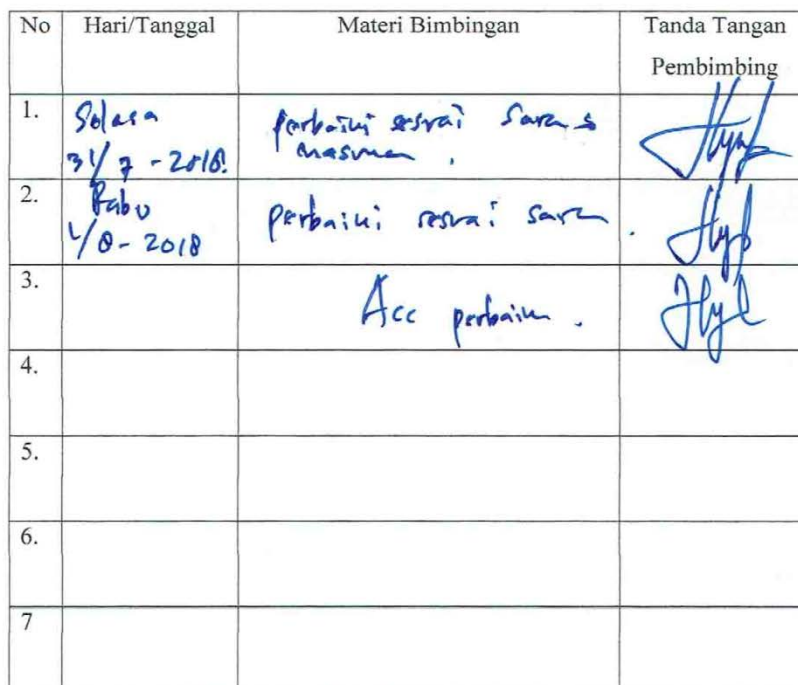 No Hari/Tanggal Materi Bimbingan Tanda Tangan
Pembimbing
1. Selasa perbaiki sesuai saran &
31/7 - 2018 masukan .
2. Rabu
1/8 - 2018 perbaiki sesuai saran .
3. Acc perbaikan .
4.
5.
6.
7